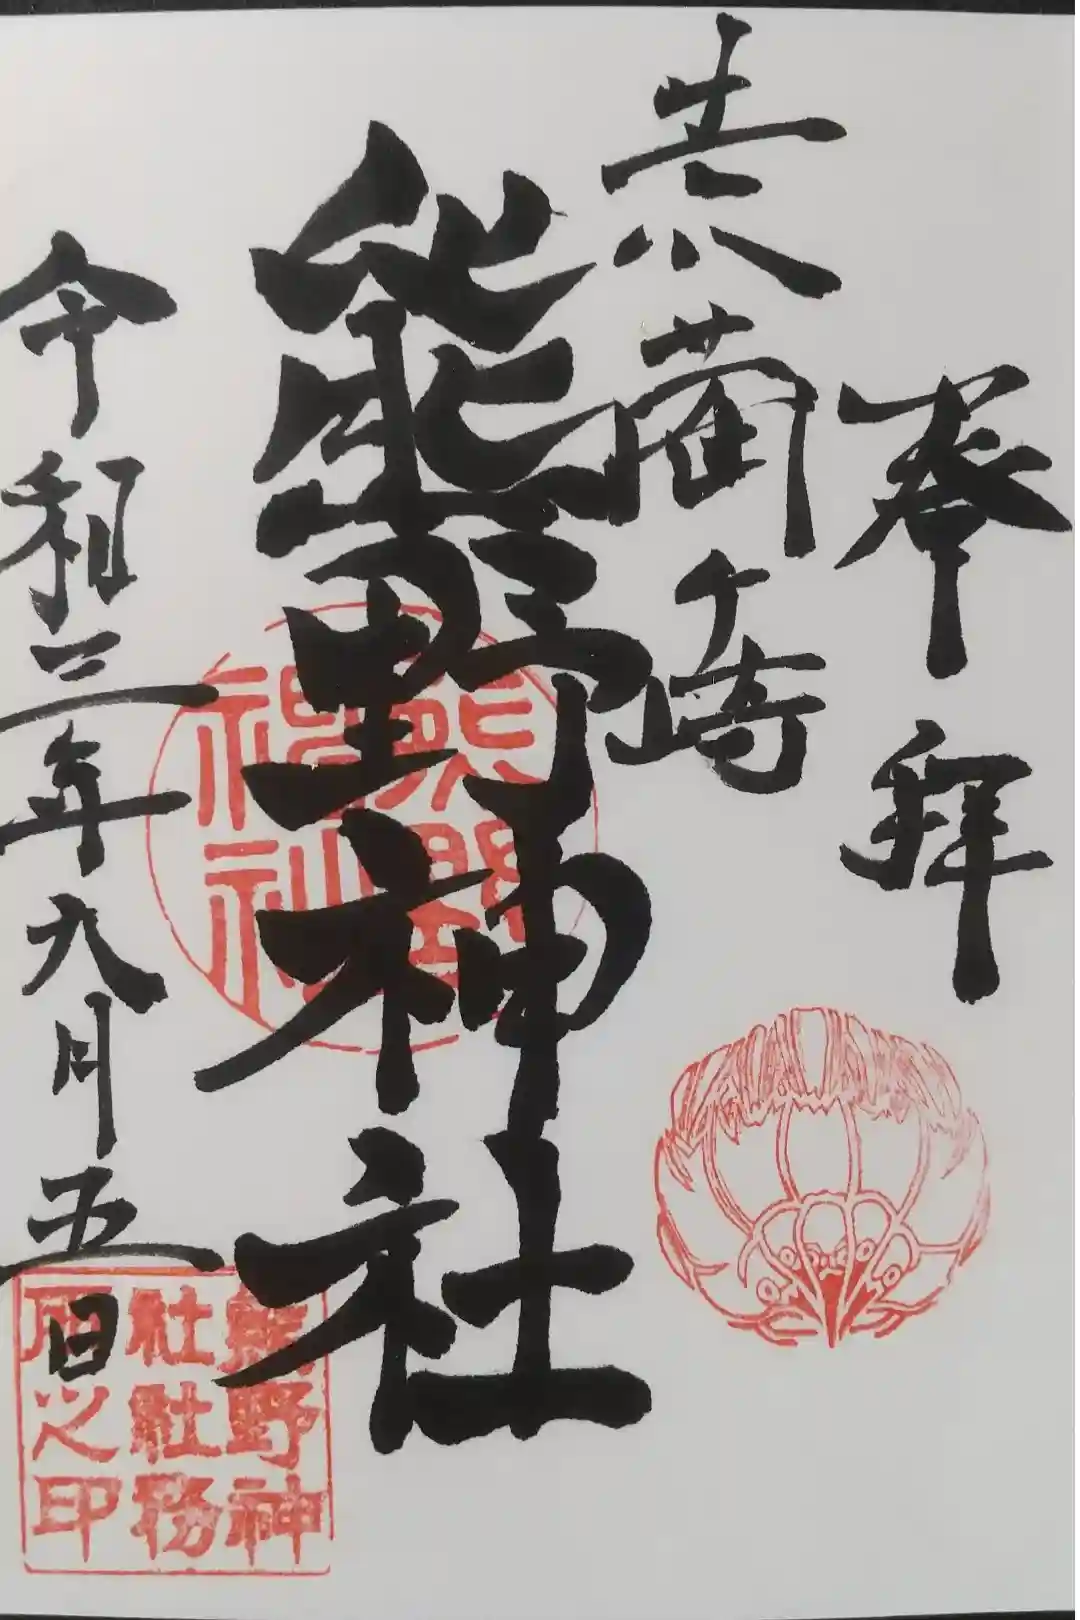 奉拝
赤薗ヶ崎
熊野神社
令和三年九月五日
熊野神社
熊野神
社社務
所之印